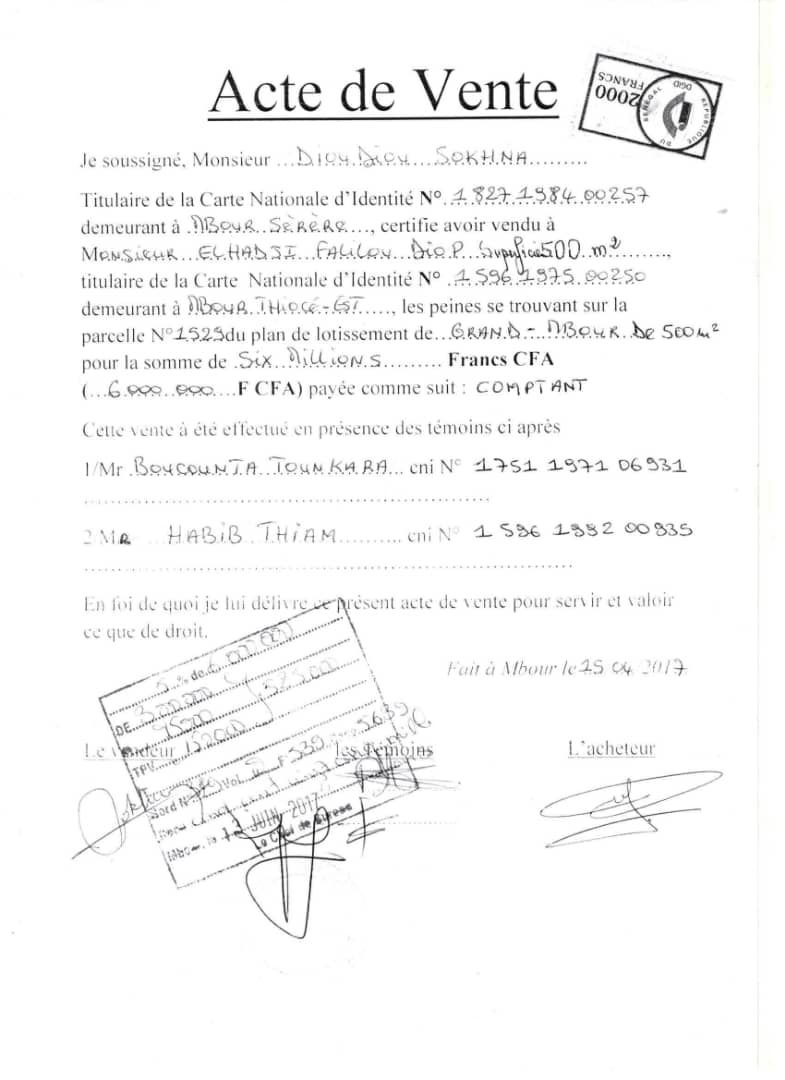 Acte de Vente
2000
FRANCS
REPUBLIQUE DU SENEGAL
DGID
Je soussigné, Monsieur ...Diou.Diou...SOKHNA..........
Titulaire de la Carte Nationale d'Identité N°.1.827.1984.00257
demeurant à .MBour..Sérère...., certifie avoir vendu à
Monsieur...ELHADJI...FALILOU...Dio.P. Superficie500.m²........,
titulaire de la Carte Nationale d'Identité N° .1.596.1975.00250
demeurant à MBour.Thiocé-EST....., les peines se trouvant sur la
parcelle N°1529du plan de lotissement de..GRAND-MBour De 500m²
pour la somme de .Six..Millions......... Francs CFA
(...6.000..000....F CFA) payée comme suit : COMPTANT
Cette vente à été effectué en présence des témoins ci après
1/Mr .Boucounta.Tounkara... cni N° 1751 1971 06931
2 Mr ...HABIB.THIAM.......... cni N° 1 596 1992 00935
En foi de quoi je lui délivre ce présent acte de vente pour servir et valoir
ce que de droit.
Fait à Mbour le 25 04 2017
5..% de 6 000 000
DE 300.000
15200
525.000
TPV
Le vendeur
les témoins
L'acheteur
Bord N°
Vol
F 539
5639
JUIN 2017
Le Chef de Bureau